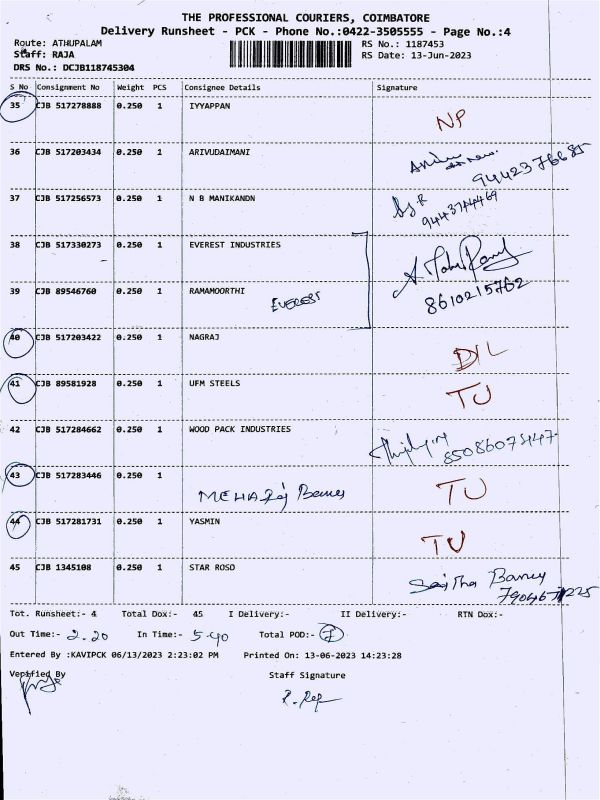 THE PROFESSIONAL COURIERS, COIMBATORE
Delivery Runsheet - PCK - Phone No.:0422-3505555 - Page No.:4
Route: ATHUPALAM RS No.: 1187453
Staff: RAJA RS Date: 13-Jun-2023
DRS No.: DCJB118745304
S No Consignment No Weight PCS Consignee Details Signature
35 CJB 517278888 0.250 1 IYYAPPAN NP
36 CJB 517203434 0.250 1 ARIVUDAIMANI
9442376685
37 CJB 517256573 0.250 1 N B MANIKANDN
9443744469
38 CJB 517330273 0.250 1 EVEREST INDUSTRIES
39 CJB 89546760 0.250 1 RAMAMOORTHI EVEREST 8610215762
40 CJB 517203422 0.250 1 NAGRAJ D/L
41 CJB 89581928 0.250 1 UFM STEELS TU
42 CJB 517284662 0.250 1 WOOD PACK INDUSTRIES
43 CJB 517283446 0.250 1 TU
44 CJB 517281731 0.250 1 YASMIN TU
45 CJB 1345108 0.250 1 STAR ROSO
Tot. Runsheet:- 4 Total Dox:- 45 I Delivery:- II Delivery:- RTN Dox:-
Out Time:- 2.20 In Time:- 5.40 Total POD:- 7
Entered By :KAVIPCK 06/13/2023 2:23:02 PM Printed On: 13-06-2023 14:23:28
Verified By Staff Signature